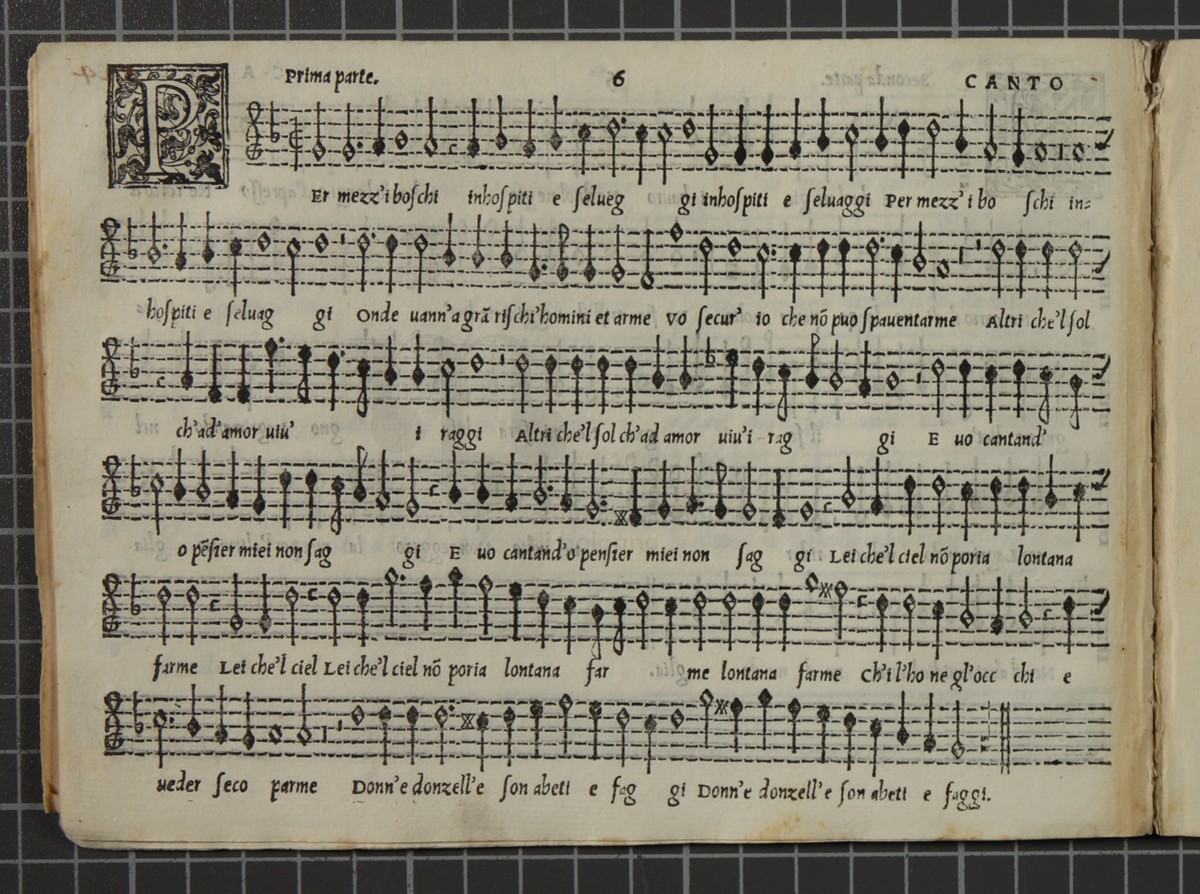 Prima parte. 6 CANTO
PEr mezz'i boschi inhospiti e selueg gi inhospiti e seluaggi Per mezz'i bo schi in=
hospiti e seluag gi Onde uann'a grã rischi'homini et arme Vo secur' io che nõ puo spauentarme Altri che'l sol
ch'ad'amor uiu' i raggi Altri che'l sol ch'ad amor uiu'i rag gi E uo cantand'
o pẽsier miei non sag gi E uo cantand'o pensier miei non sag gi Lei che'l ciel nõ poria lontana
farme Lei che'l ciel Lei che'l ciel nõ poria lontana far me lontana farme Ch'i l'ho ne gl'occ chi e
ueder seco parme Donn'e donzell'e son abeti e fag gi Donn'e donzell'e son abeti e faggi.